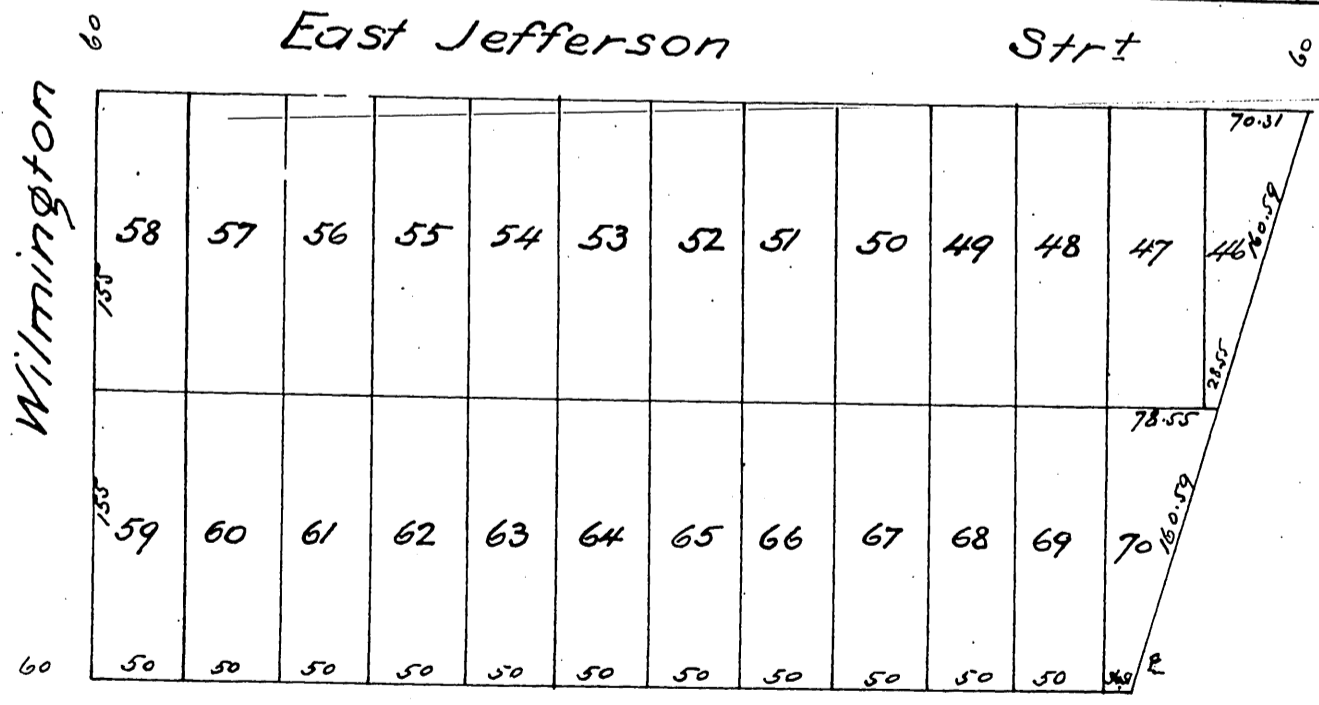 60 East Jefferson Strt 60
Wilmington
70.31
58 57 56 55 54 53 52 51 50 49 48 47 46 160.59
155
28.55
78.55
155
59 60 61 62 63 64 65 66 67 68 69 70 160.59
60 50 50 50 50 50 50 50 50 50 50 50